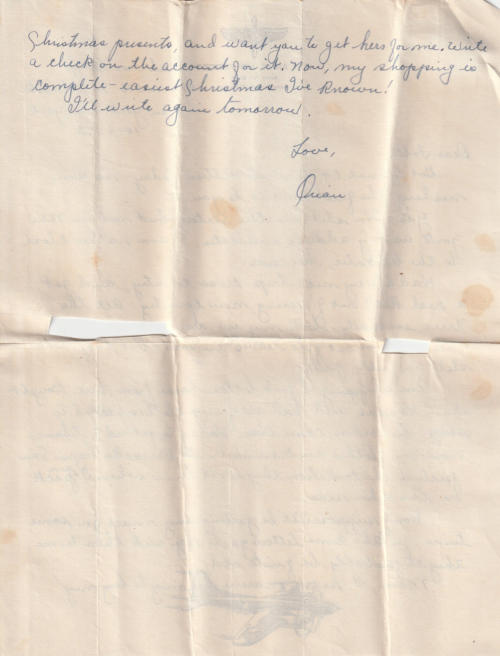 Christmas presents, and want you to get hers for me. Write
a check on the account for it. Now, my shopping is
complete - easiest Christmas I've known!
I'll write again tomorrow.
Love,